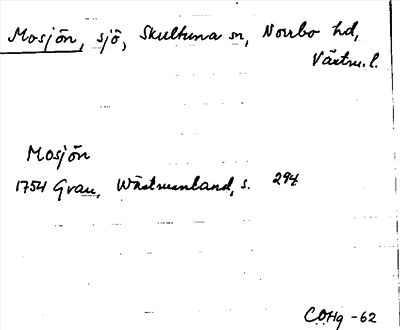 Mosjön, sjö, Skultuna sn, Norrbo hd,
Västm. l.
Mosjön
1754 Grau, Wästmanland, s. 294
COHg -62